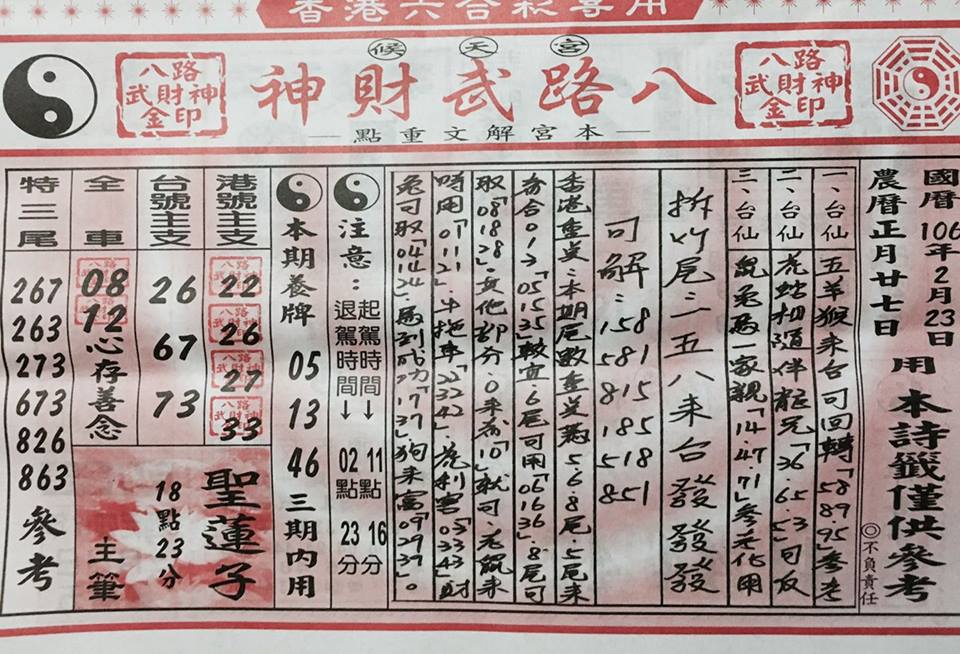 香港六合彩專用
宮天候
八路武財神
八路
武財神
金印
八路
武財神
金印
本宮解文重點
國曆106年2月23日
農曆正月廿七日
用本詩籤僅供參考
◎不負責任
一、台仙 五羊猴來台可回轉「58.89.95」參考
二、台仙 虎蛇相隨伴龍兄「36.65.3」可反
三、台仙 龜兔一家親「14.47.71」參考化用
拆竹尾二五八來台發發發
可解:158 581 815 185 518 851
香港重點:本期尾數重點為5.6.8尾5尾來
合013「051535較宜.6尾可用「061636」8尾可
取「081828」其他部分.0來為「10」就可
時用「011121」牛拖車「223242」「053343」財
兔可取「041424」馬到成功「171737」狗來富「092937」。
注意:
起駕時間↓11點16分
退駕時間↓02點23分
本期養牌 05 13 46 三期內用
港號主支
22
26
27
33
台號主支
26
67
73
全車
08
12
心存善念
特三尾
267
263
273
673
826
863
參考
聖蓮子
18點23分
主筆